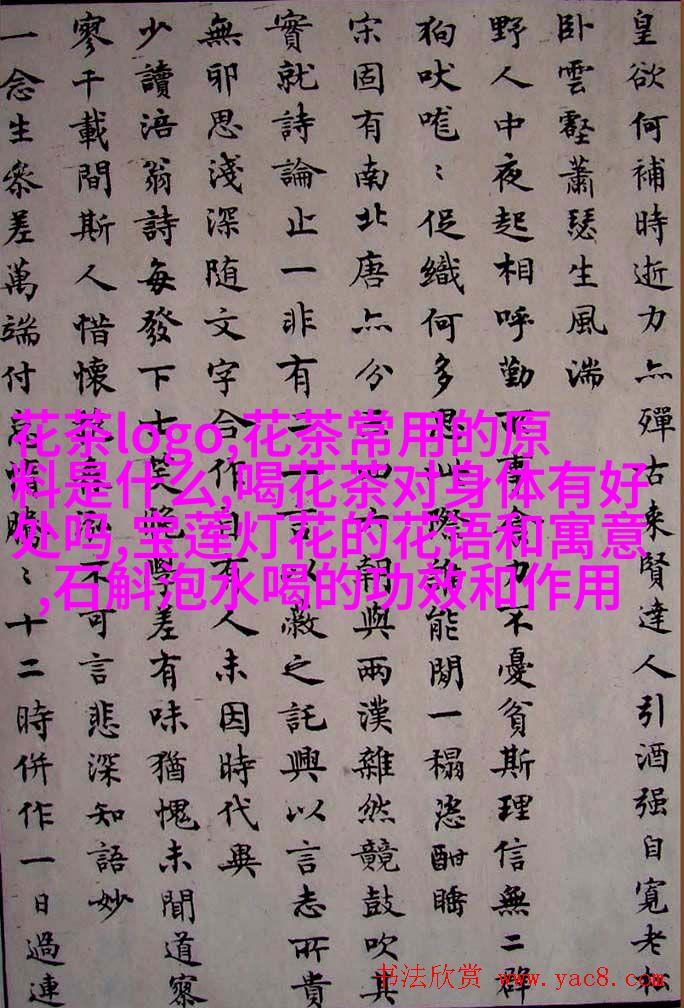 皇欲何補時逝力亦殫古來賢達人引酒强自寬老
卧雲壑蕭瑟生風湍
野人中夜起相呼勤事食力不憂貧斯理信無二群
狗吠嘊〻促織何多此際詎能閉一榻恣酣睡
宋固有南北唐亦分朝與兩漢雜然競鼓吹其
實就詩論止一非有二一言以蔽之託興以言志所貴
無邪思淺深随文字合作自有人未因時代異
少讀涪翁詩每發下士笑晚學差有味猶愧未聞道寥
寥千載間斯人惜懷不可言悲深知語妙
一念生參差萬端付〻十二時併作一日過連
花茶logo,花茶常用的原
料是什么,喝花茶对身体有好
处吗,宝莲灯花的花语和寓意
,石斛泡水喝的功效和作用
书法欣赏 www.yac8.com